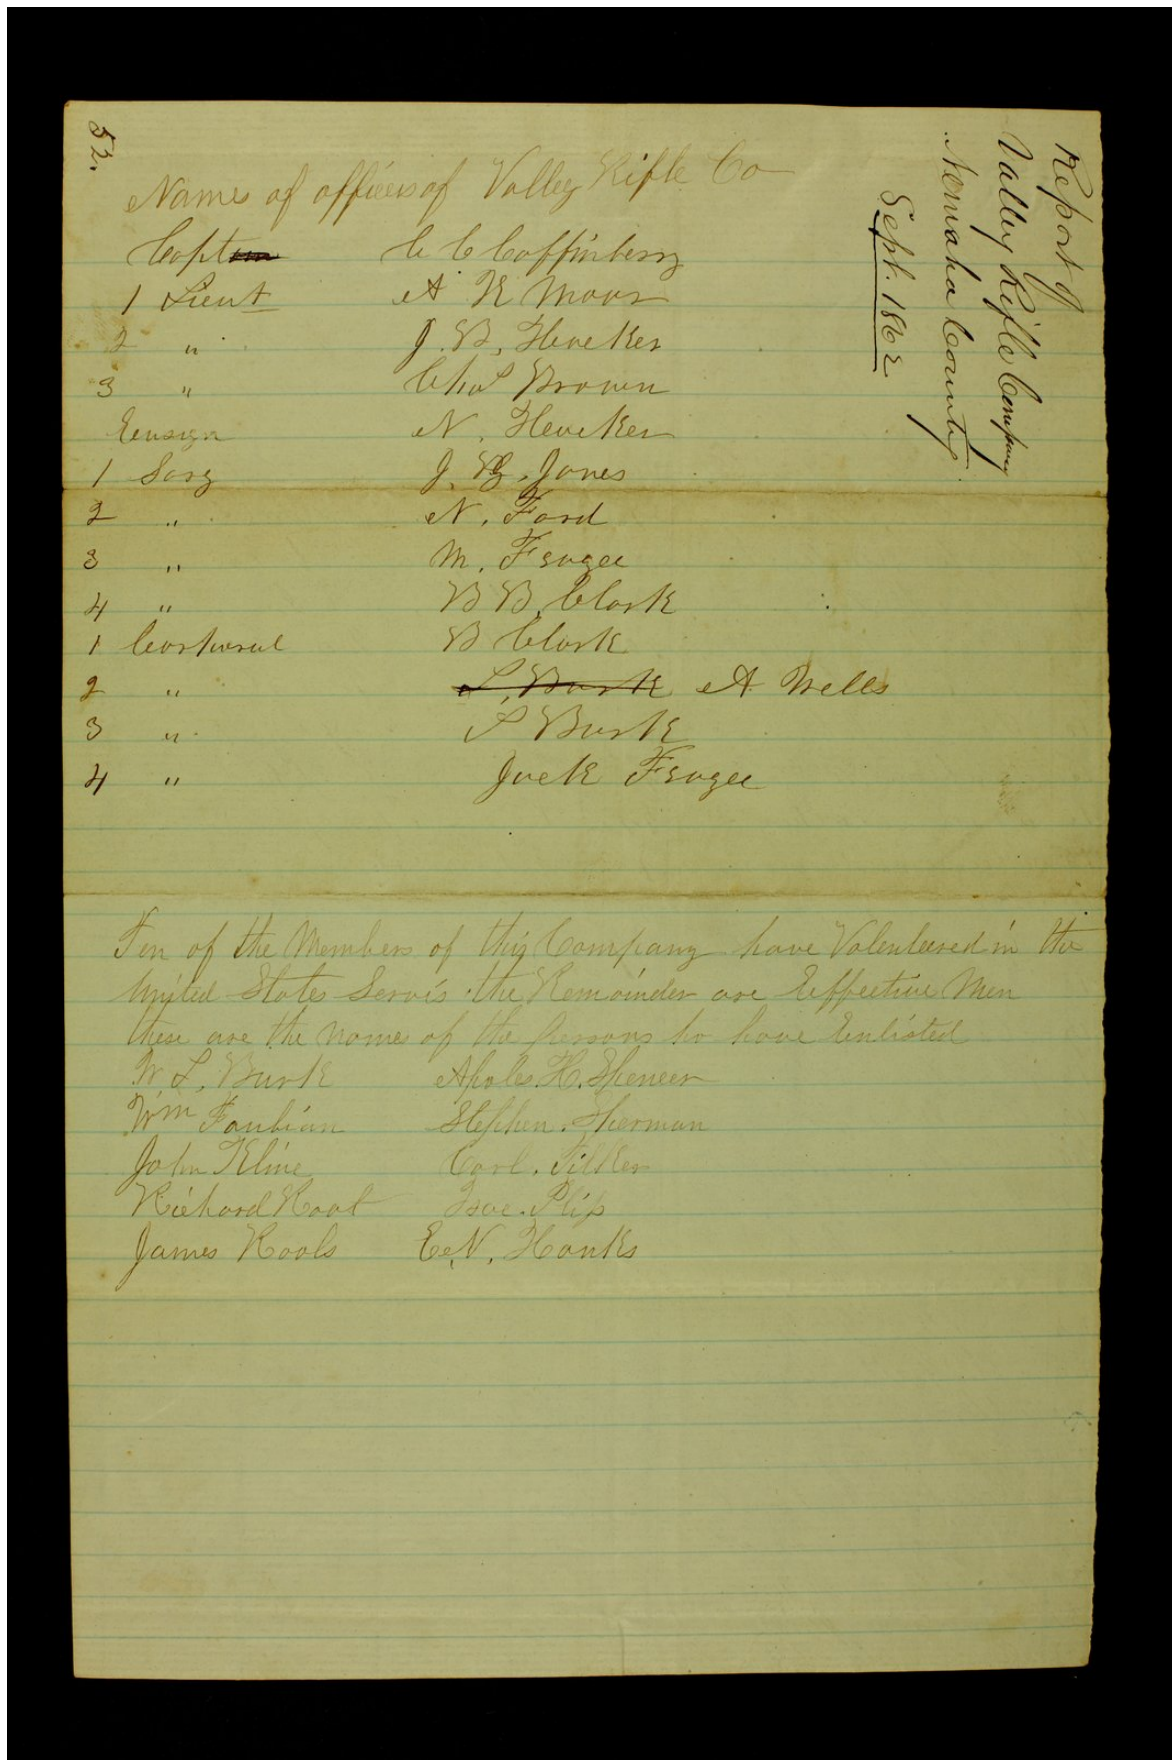 52.
Report of
Valley Rifle Company
Nemaha County
Sept. 1862
Names of officers of Valley Rifle Co
Capt C C Coffinberry
1 Lieut A K Moor
2 " J. B. Heucker
3 " Chas Brown
Eensign N. Heucker
1 Sarg J. Jones
2 " N. Ford
3 " M. Fragee
4 " B B. Clark
1 Corporal B Clark
2 " L. Burk A Wells
3 " S Burk
4 " Jack Fragee
Ten of the Members of this Company have Volenteered in the
United States Servis the Remainder are Eeffective Men
these are the names of the Persons ho have Enlisted
W. L. Burk Apoles. H. Spencer
Wm Faubian Stephen. Sherman
John Kline Carl. Filker
Richard Root Isac. Slip
James Rools E. N. Hanks